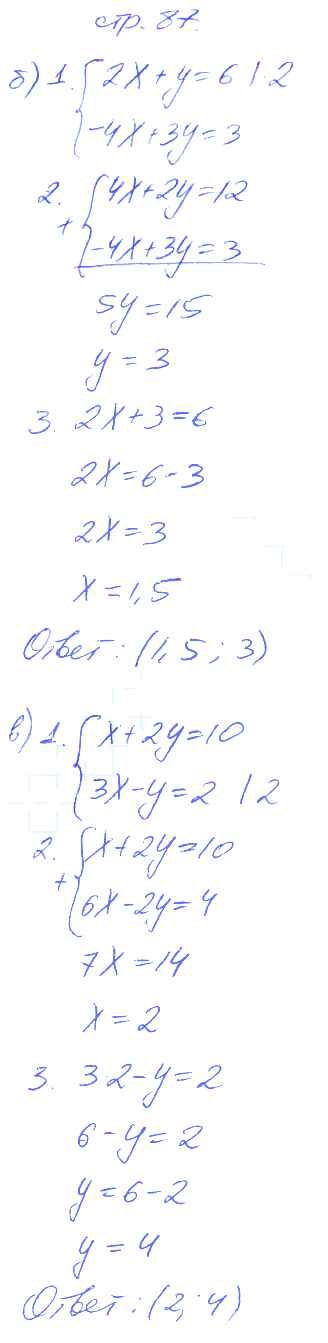 стр. 87.
б) 1. { 2x + y = 6 | · 2
-4x + 3y = 3
2. { 4x + 2y = 12
+ -4x + 3y = 3
5y = 15
y = 3
3. 2x + 3 = 6
2x = 6 - 3
2x = 3
x = 1,5
Ответ: (1,5 ; 3)
в) 1. { x + 2y = 10
3x - y = 2 | 2
2. { x + 2y = 10
+ 6x - 2y = 4
7x = 14
x = 2
3. 3·2 - y = 2
6 - y = 2
y = 6 - 2
y = 4
Ответ: (2; 4)